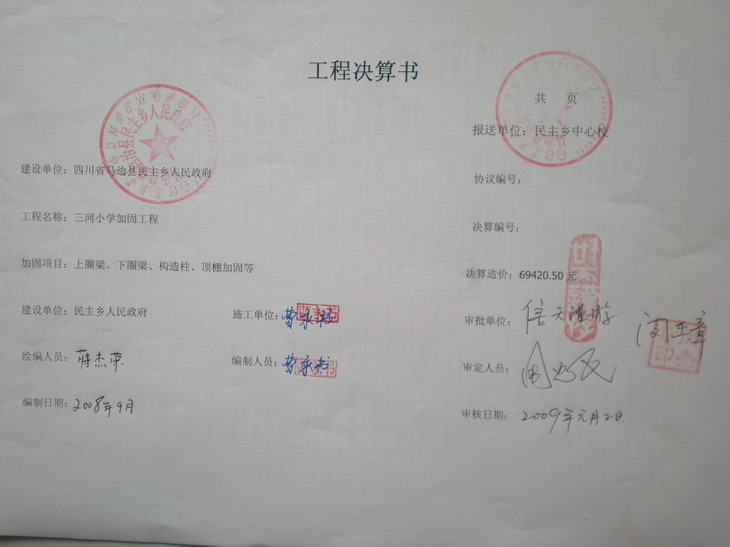 工程决算书
共 页
报送单位：民主乡中心校
建设单位：四川省马边县民主乡人民政府
协议编号：
工程名称：三河小学加固工程
决算编号：
加固项目：上圈梁、下圈梁、构造柱、顶棚加固等
决算造价：69420.50 元
建设单位：民主乡人民政府
施工单位：曹永书
审批单位：
绘编人员：蒋杰荣
编制人员：曹永书
审定人员：
编制日期：2008年9月
审核日期：2009年元月2日